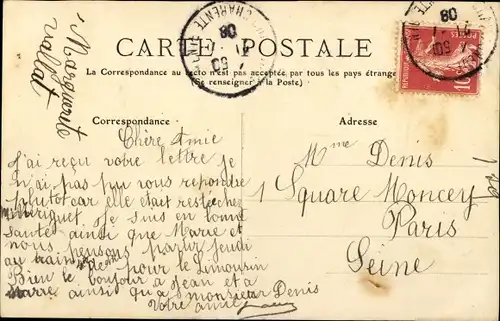 Marguerite
CARTE POSTALE
La Correspondance au recto n'est pas acceptée par tous les pays étrange
(Se renseigner à la Poste)
Correspondance
Adresse
Chère Amie
J'ai reçu votre lettre je
n'ai pas pu vous repondre
plutot car elle était reste chez
Je suis en bonne
santé ainsi que Marie et
nous pensons partir jeudi
au train de pour le Limousin
Bien le bonjour a Jean et a
ainsi qu'a monsieur Denis
Votre amie
Mme Denis
1 Square Moncey
Paris
Seine